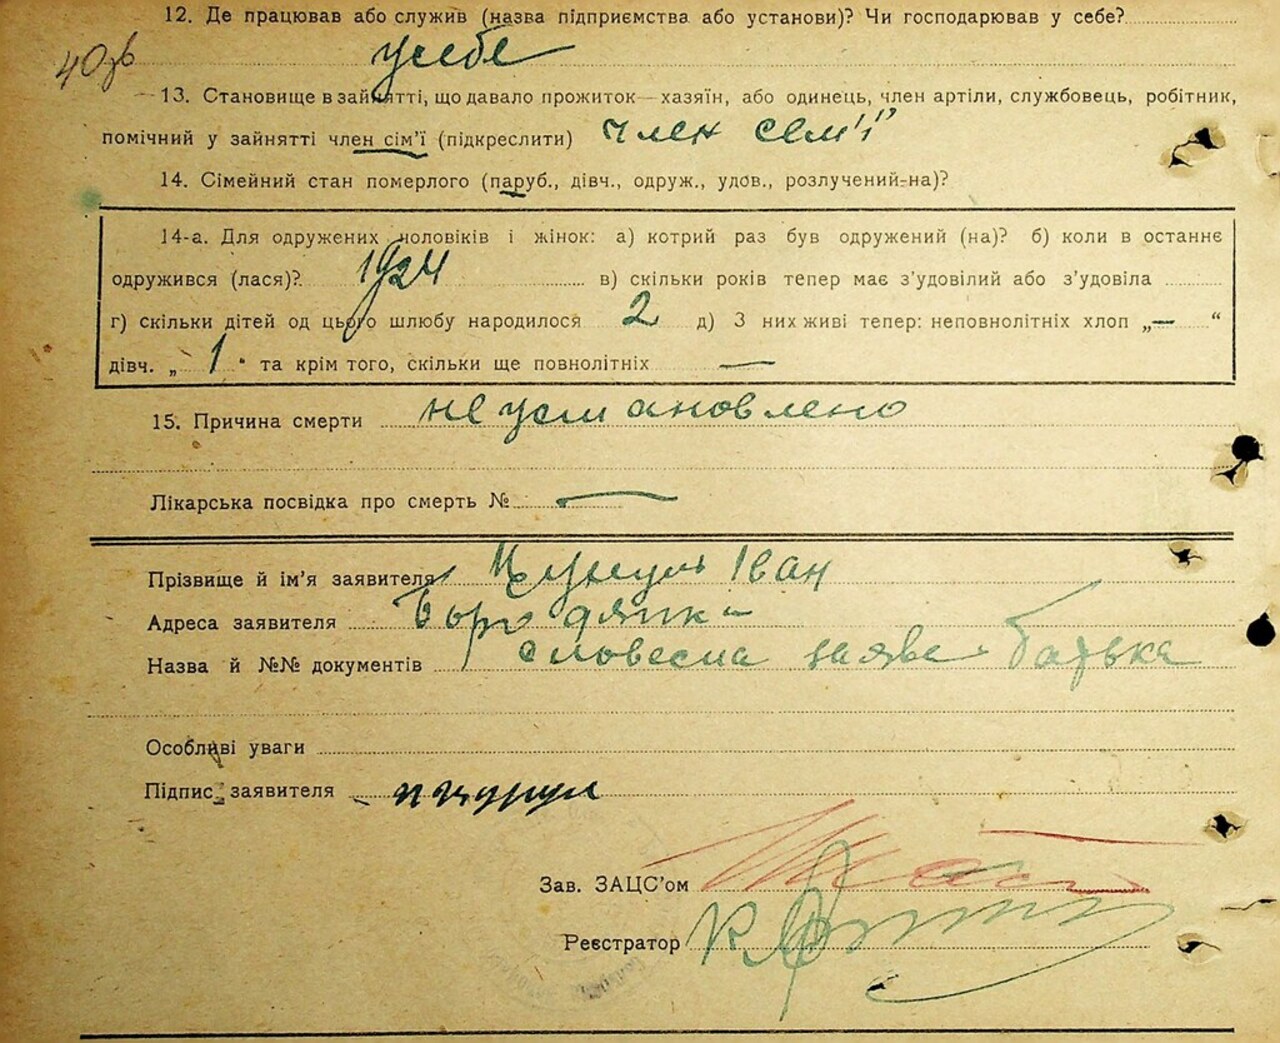 12. Де працював або служив (назва підприємства або установи)? Чи господарював у себе?
40зв
у себе
13. Становище в зайнятті, що давало прожиток—хазяїн, або одинець, член артіли, службовець, робітник,
помічний у зайнятті член сім’ї (підкреслити) член сем'ї
14. Сімейний стан померлого (паруб., дівч., одруж., удов., розлучений-на)?
14-а. Для одружених чоловіків і жінок: а) котрий раз був одружений (на)? б) коли в останнє
одружився (лася)? 1924 в) скільки років тепер має з’удовілий або з’удовіла
г) скільки дітей од цього шлюбу народилося 2 д) З них живі тепер: неповнолітніх хлоп „—“
дівч. „ 1 " та крім того, скільки ще повнолітніх —
15. Причина смерти не установлено
Лікарська посвідка про смерть № —
Прізвище й ім’я заявителя Іван
Адреса заявителя Бородянка
Назва й №№ документів словесна заява батька
Особливі уваги
Підпис заявителя
Зав. ЗАЦС’ом
Реєстратор